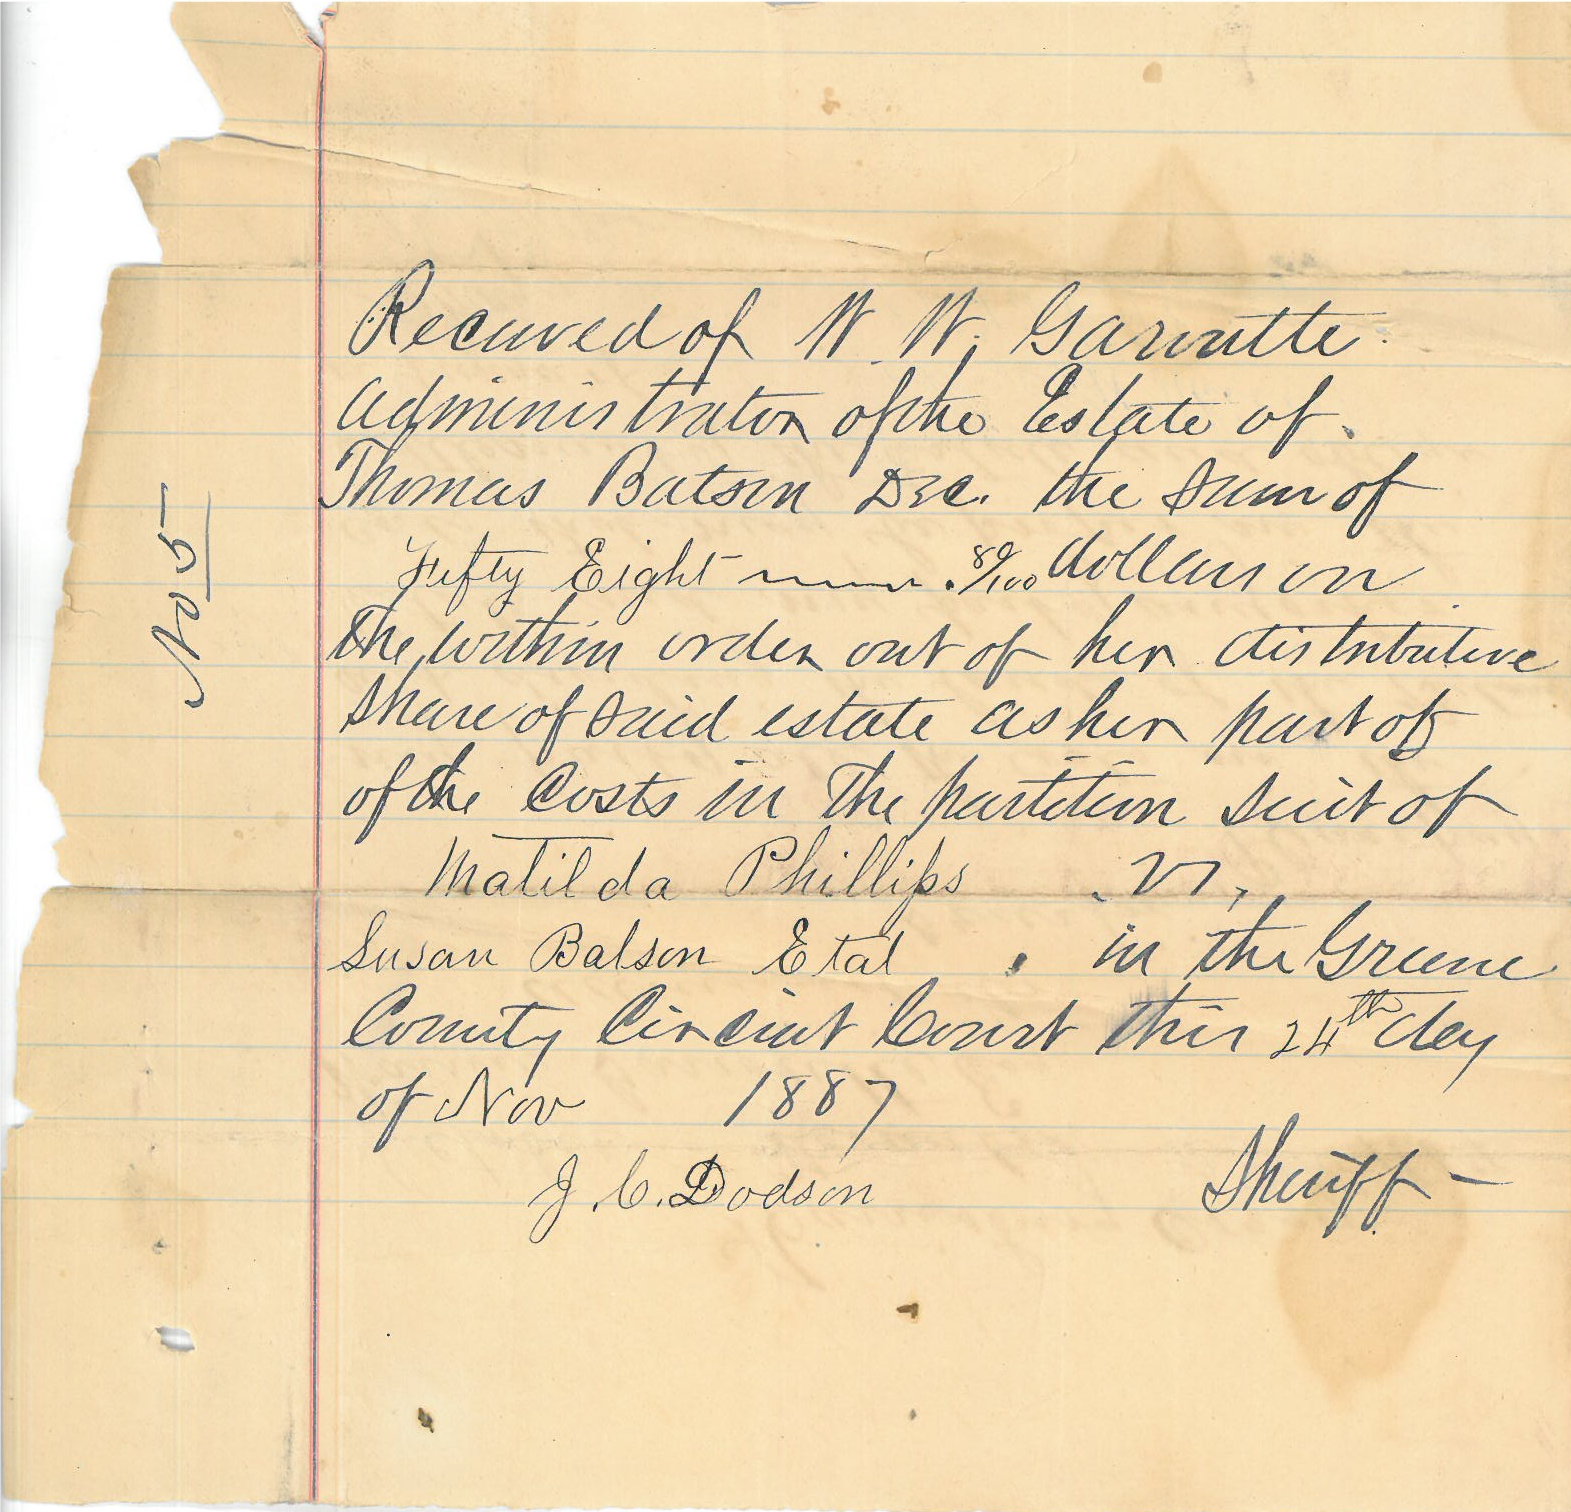 No 5
Received of W. W. Garoutte
Administrator of the Estate of
Thomas Batson Dec. the sum of
Fifty Eight 80/100 dollars on
the within order out of her distributive
share of said estate as her part of
of the Costs in the partition suit of
Matilda Phillips vs,
Susan Batson Etal in the Greene
County Circuit Court this 24th day
of Nov 1887
J. C. Dodson Sheriff -